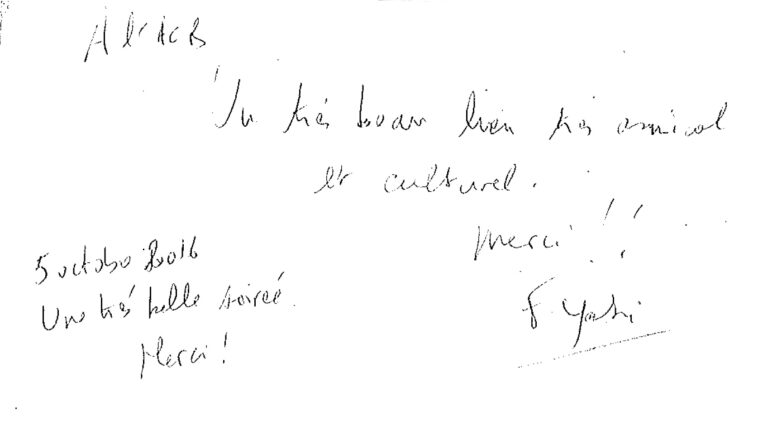 A l'ACB
Un très beau lien très amical
et culturel.
Merci !!
F. 
5 octobre 2016
Une très belle soireé.
Merci !